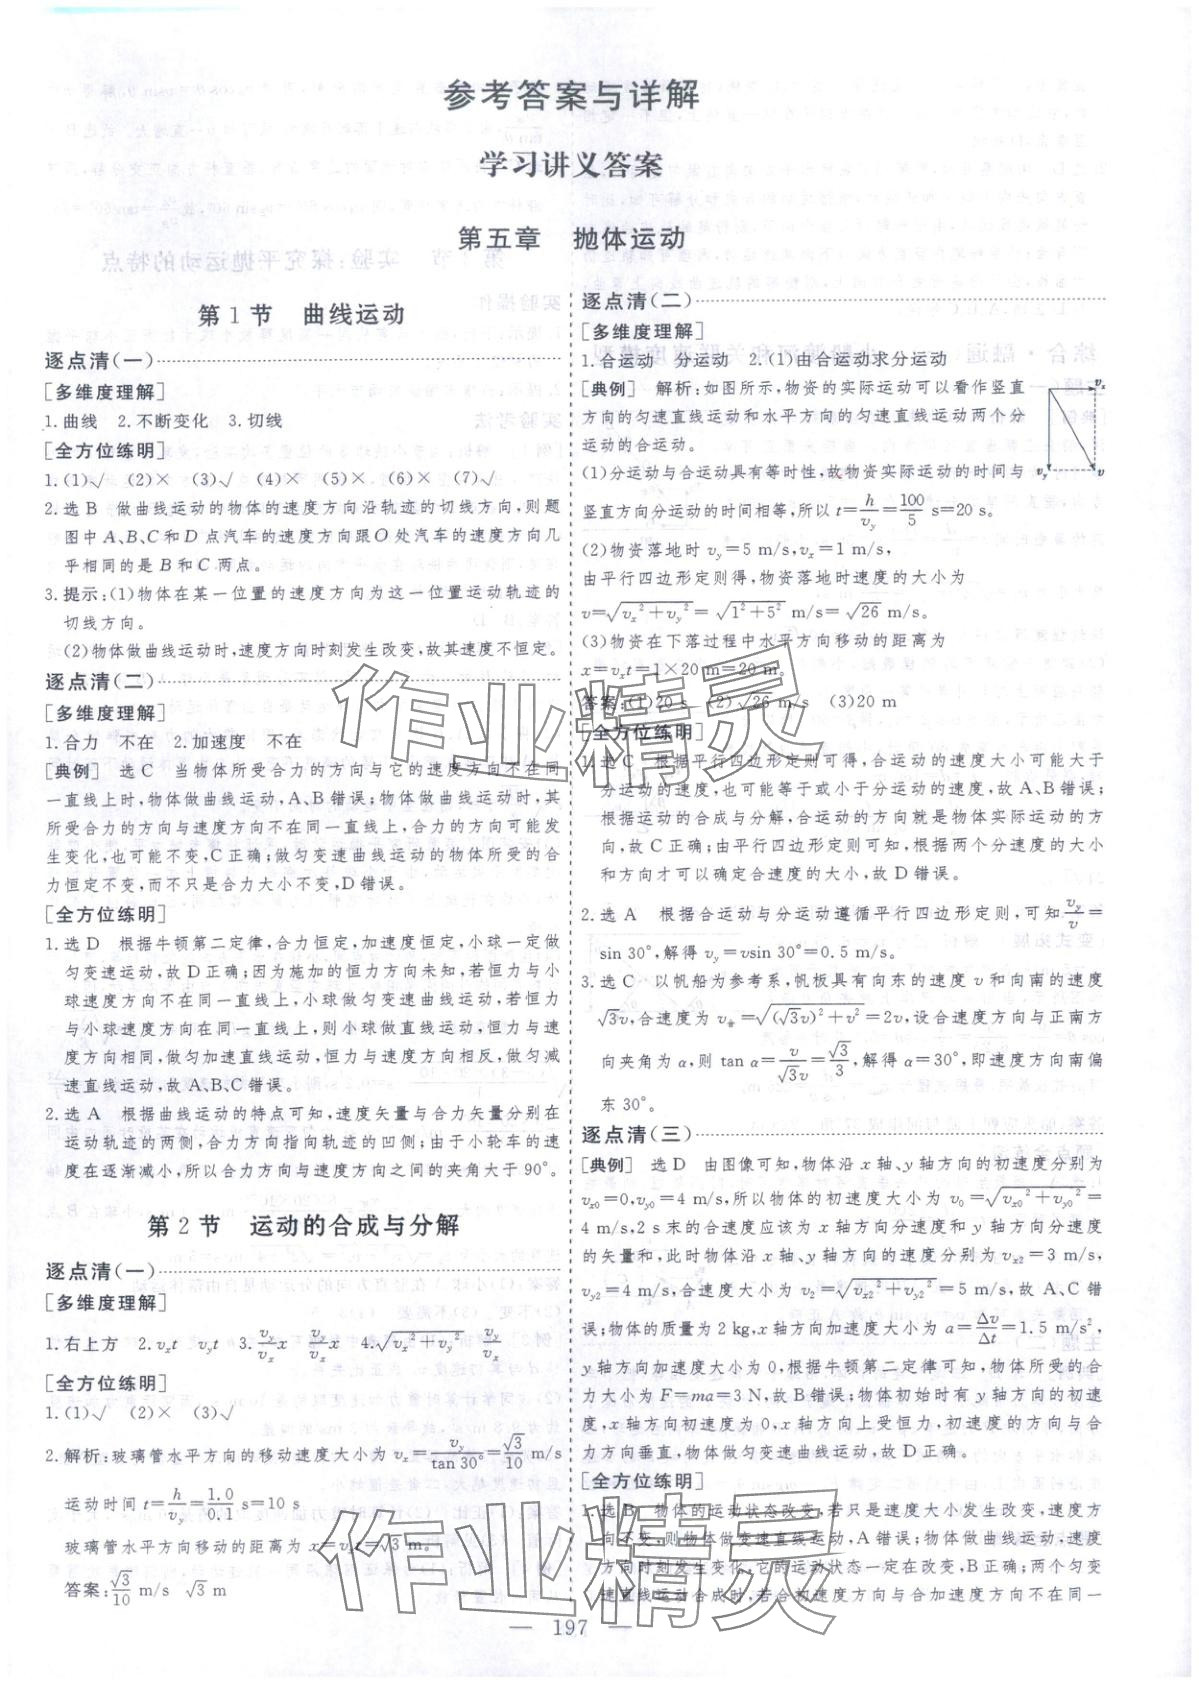 参考答案与详解
学习讲义答案
第五章 抛体运动
第1节 曲线运动
逐点清(一)
[多维度理解]
1.曲线 2.不断变化 3.切线
[全方位练明]
1.(1)√ (2)× (3)√ (4)× (5)× (6)× (7)√
2.选B 做曲线运动的物体的速度方向沿轨迹的切线方向,则题
图中A、B、C和D点汽车的速度方向跟O处汽车的速度方向几
乎相同的是B和C两点。
3.提示:(1)物体在某一位置的速度方向为这一位置运动轨迹的
切线方向。
(2)物体做曲线运动时,速度方向时刻发生改变,故其速度不恒定。
逐点清(二)
[多维度理解]
1.合力 不在 2.加速度 不在
[典例] 选C 当物体所受合力的方向与它的速度方向不在同
一直线上时,物体做曲线运动,A、B错误;物体做曲线运动时,其
所受合力的方向与速度方向不在同一直线上,合力的方向可能发
生变化,也可能不变,C正确;做匀变速曲线运动的物体所受的合
力恒定不变,而不只是合力大小不变,D错误。
[全方位练明]
1.选D 根据牛顿第二定律,合力恒定,加速度恒定,小球一定做
匀变速运动,故D正确;因为施加的恒力方向未知,若恒力与小
球速度方向不在同一直线上,小球做匀变速曲线运动,若恒力
与小球速度方向在同一直线上,则小球做直线运动,恒力与速
度方向相同,做匀加速直线运动,恒力与速度方向相反,做匀减
速直线运动,故A、B、C错误。
2.选A 根据曲线运动的特点可知,速度矢量与合力矢量分别在
运动轨迹的两侧,合力方向指向轨迹的凹侧;由于小轮车的速
度在逐渐减小,所以合力方向与速度方向之间的夹角大于90°。
第2节 运动的合成与分解
逐点清(一)
[多维度理解]
1.右上方 2.vₓt v_y t 3.v_y/vₓ v_y/vₓ x 4.√(vₓ²+v_y²) v_y/vₓ
[全方位练明]
1.(1)√ (2)× (3)√
2.解析:玻璃管水平方向的移动速度大小为vₓ=v_y/tan 30°=√3/10 m/s
运动时间t=h/v_y=1.0/0.1 s=10 s
玻璃管水平方向移动的距离为x=vₓt=√3 m。
答案:√3/10 m/s √3 m
逐点清(二)
[多维度理解]
1.合运动 分运动 2.(1)由合运动求分运动
[典例] 解析:如图所示,物资的实际运动可以看作竖直
方向的匀速直线运动和水平方向的匀速直线运动两个分
运动的合运动。
(1)分运动与合运动具有等时性,故物资实际运动的时间与
竖直方向分运动的时间相等,所以t=h/v_y=100/5 s=20 s。
vₓ
v_y v
(2)物资落地时v_y=5 m/s,vₓ=1 m/s,
由平行四边形定则得,物资落地时速度的大小为
v=√(vₓ²+v_y²)=√(1²+5²) m/s=√26 m/s。
(3)物资在下落过程中水平方向移动的距离为
x=vₓt=1×20 m=20 m。
答案:(1)20 s (2)√26 m/s (3)20 m
[全方位练明]
1.选C 根据平行四边形定则可得,合运动的速度大小可能大于
分运动的速度,也可能等于或小于分运动的速度,故A、B错误;
根据运动的合成与分解,合运动的方向就是物体实际运动的方
向,故C正确;由平行四边形定则可知,根据两个分速度的大小
和方向才可以确定合速度的大小,故D错误。
2.选A 根据合运动与分运动遵循平行四边形定则,可知v_y/v=
sin 30°,解得v_y=vsin 30°=0.5 m/s。
3.选C 以帆船为参考系,帆板具有向东的速度v和向南的速度
√3v,合速度为v合=√((√3v)²+v²)=2v,设合速度方向与正南方
向夹角为α,则tan α=v/√3v=√3/3,解得α=30°,即速度方向南偏
东30°。
逐点清(三)
[典例] 选D 由图像可知,物体沿x轴、y轴方向的初速度分别为
vₓ₀=0,v_y0=4 m/s,所以物体的初速度大小为v₀=√(vₓ₀²+v_y0²)=
4 m/s,2 s末的合速度应该为x轴方向分速度和y轴方向分速度
的矢量和,此时物体沿x轴、y轴方向的速度分别为vₓ₂=3 m/s,
v_y2=4 m/s,合速度大小为v₂=√(vₓ₂²+v_y2²)=5 m/s,故A、C错
误;物体的质量为2 kg,x轴方向加速度大小为a=Δv/Δt=1.5 m/s²,
y轴方向加速度大小为0,根据牛顿第二定律可知,物体所受的合
力大小为F=ma=3 N,故B错误;物体初始时有y轴方向的初速
度,x轴方向初速度为0,x轴方向上受恒力,初速度的方向与合
力方向垂直,物体做匀变速曲线运动,故D正确。
[全方位练明]
1.选B 物体的运动状态改变,若只是速度大小发生改变,速度方
向不变,则物体做变速直线运动,A错误;物体做曲线运动,速度
方向时刻发生变化,它的运动状态一定在改变,B正确;两个匀变
速直线运动合成时,若合初速度方向与合加速度方向不在同一
— 197 —
作业精灵
作业精灵